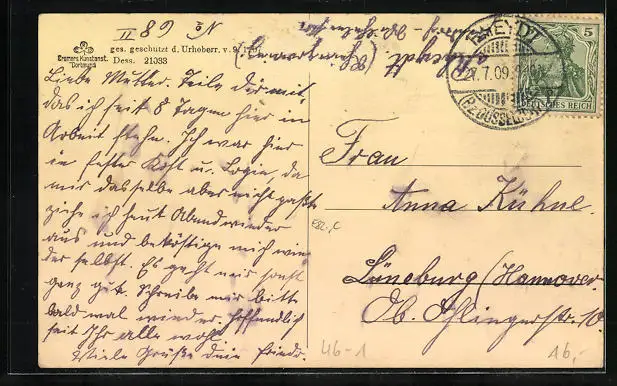 No 89 II
Cramers Kunstanst.
Dortmund
ges. geschützt d. Urheberr. v. 9./1. 07.
Dess. 21033
RHEYDT
27.7.09.
(BZ. DÜSSELDORF)
5
DEUTSCHES REICH
Liebe Mutter. Teile dir mit,
das ich seit 8 Tagen hier in
Arbeit stehe. Ich war hier
in fester Kost u. Logie, da
mir dasselbe aber nicht paßte
ziehe ich heut Abend wieder
aus und beköstige mich wie
der selbst. Es geht mir sonst
ganz gut. Schreibe mir bitte
bald mal wieder. Hoffendlich
seit Ihr alle wohl.
Viele Grüße dein Friedr.
Rheydt
Frau
Anna Kühne.
Lüneburg (Hannover
Ob. Ohlingerstr. 10
E82.C
46-1
16,-